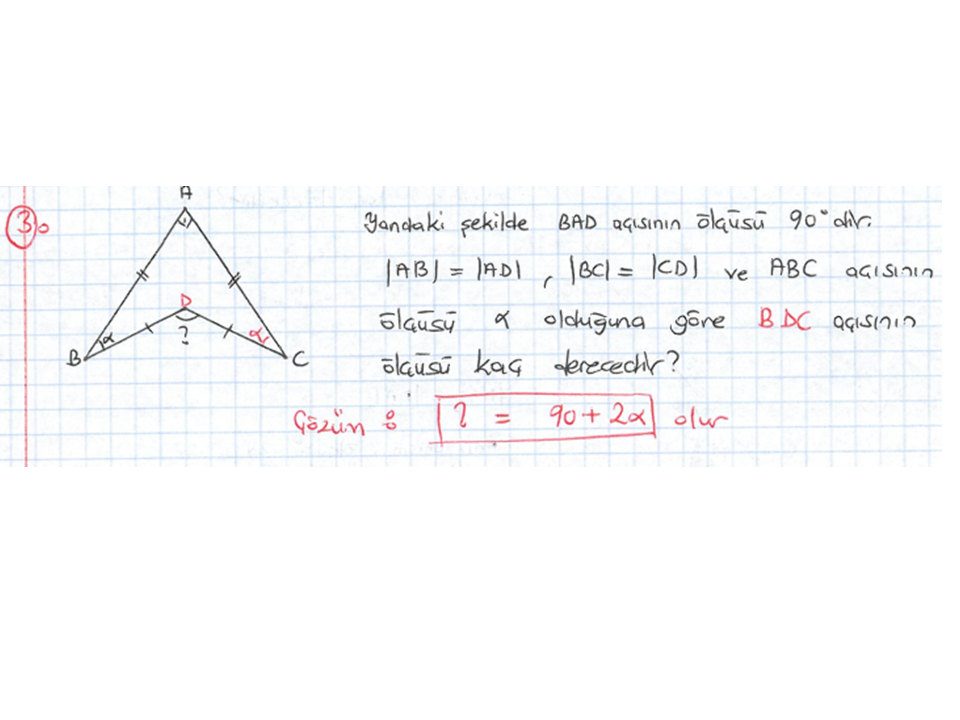 3)
A
D
B
α
?
α
C
Yandaki şekilde BAD açısının ölçüsü 90° dir.
|AB| = |AD| , |BC| = |CD| ve ABC açısının
ölçüsü α olduğuna göre BDC açısının
ölçüsü kaç derecedir?
Çözüm : ? = 90 + 2α olur